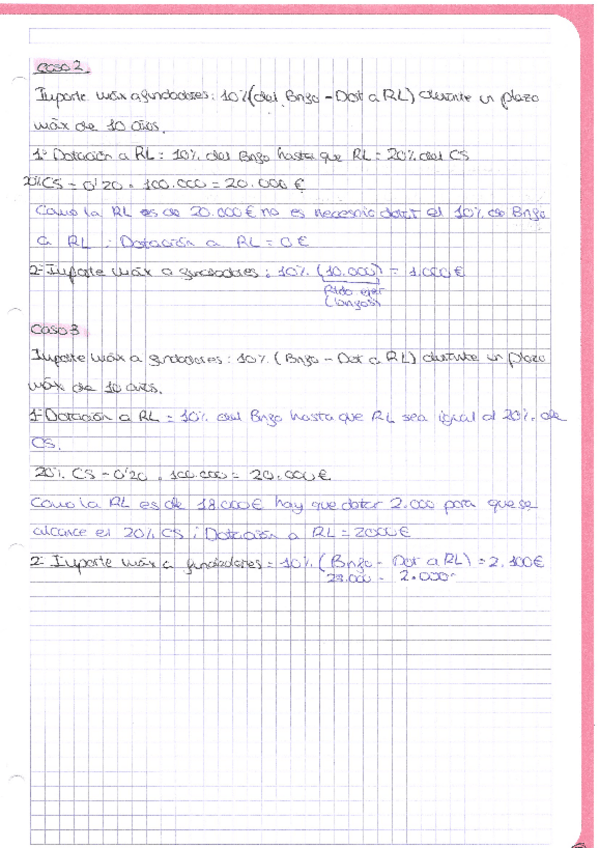 Caso 2.
Importe máx a fundadores: 10% (del Bnzo - Dot a RL) durante un plazo
máx de 10 años.
1º Dotación a RL = 10% del Bnzo hasta que RL = 20% del CS
20% CS = 0'20 · 100.000 = 20.000 €
Como la RL es de 20.000 € no es necesario dotar el 10% de Bnzo
a RL ; Dotación a RL = 0 €
2º Importe máx a fundadores : 10% (10.000) = 1.000 €
Rtdo ejer
Caso 3
Importe máx a fundadores : 10% (Bnzo - Dot a RL) durante un plazo
máx de 10 años.
1º Dotación a RL = 10% del Bnzo hasta que RL sea igual al 20% de
CS.
20% CS - 0'20 . 100.000 = 20.000 €
Como la RL es de 18.000 € hay que dotar 2.000 para que se
alcance el 20% CS ; Dotación a RL = 2000 €
2º Importe máx a fundadores = 10% (Bnzo - Dot a RL) = 2.100 €
23.000 - 2.000